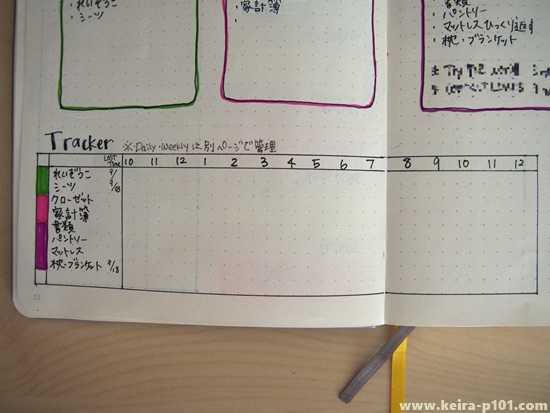 ・れいぞうこ
・シーツ
家計簿
・書類
・パントリー
・マットレスひっくり返す
・枕・ブランケット
Tracker ※Daily・Weeklyは別ページで管理
LAST TIME 10 11 12 1 2 3 4 5 6 7 8 9 10 11 12
れいぞうこ 9/
シーツ 9/18
クローゼット
家計簿
書類
パントリー
マットレス
枕・ブランケット 9/18
12
www.keira-p101.com